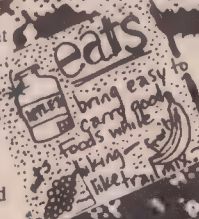 eats
MILK
bring easy to
carry good
foods while
hiking—
like trail mix